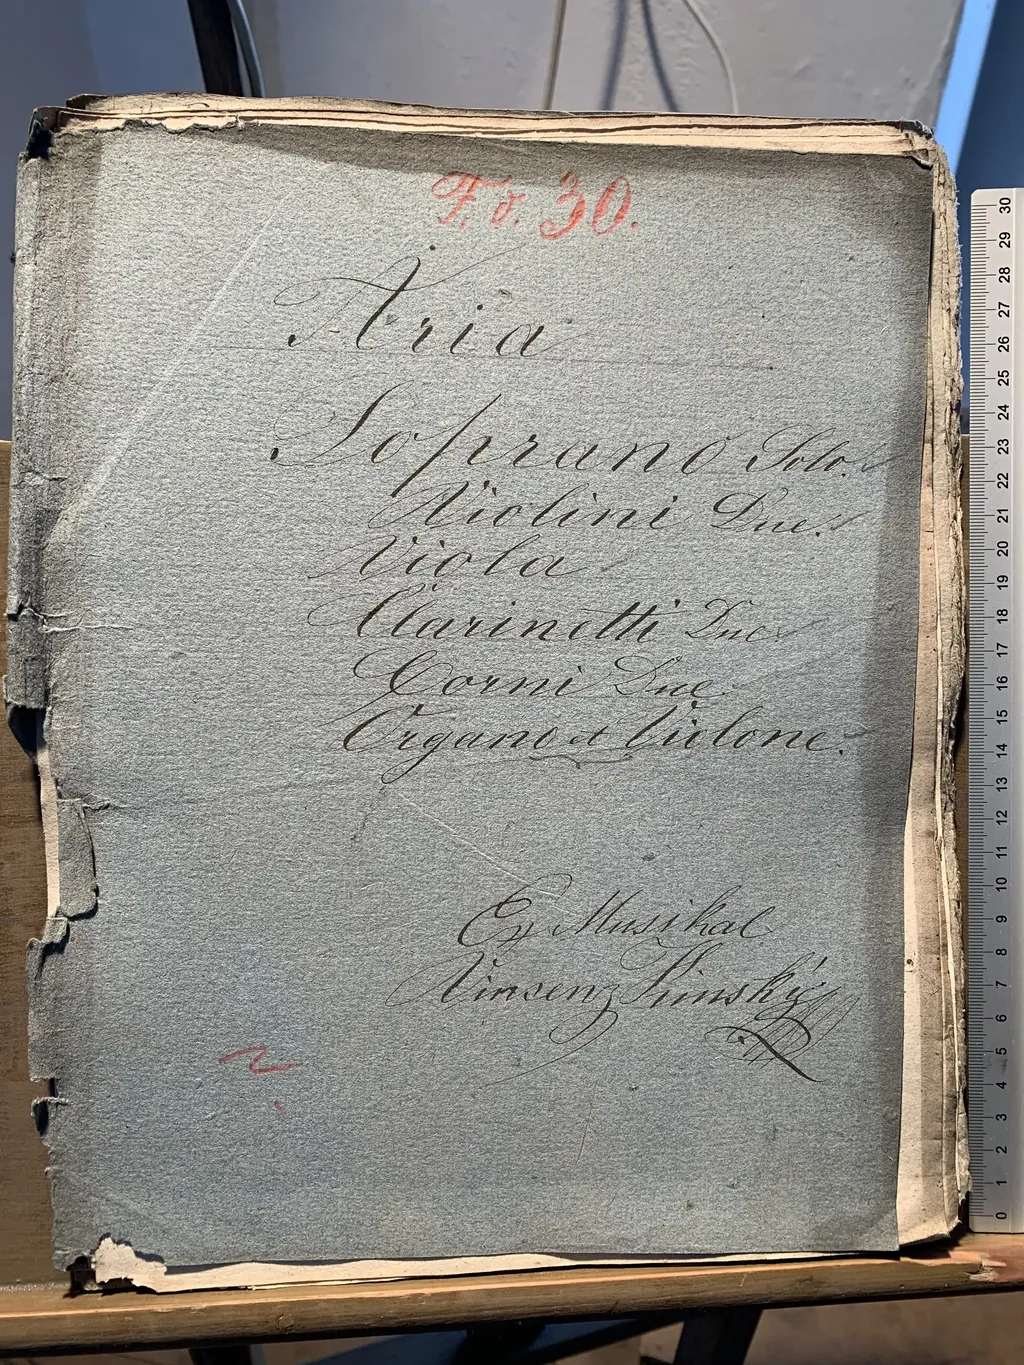 F. v. 30.
Aria
Soprano Solo.
Violini Due.
Viola
Clarinetti Due
Corni Due
Organo et Violone.
Ex Musikal
Vinsenz
30
29
28
27
26
25
24
23
22
21
20
19
18
17
16
15
14
13
12
11
10
9
8
7
6
5
4
3
2
1
0